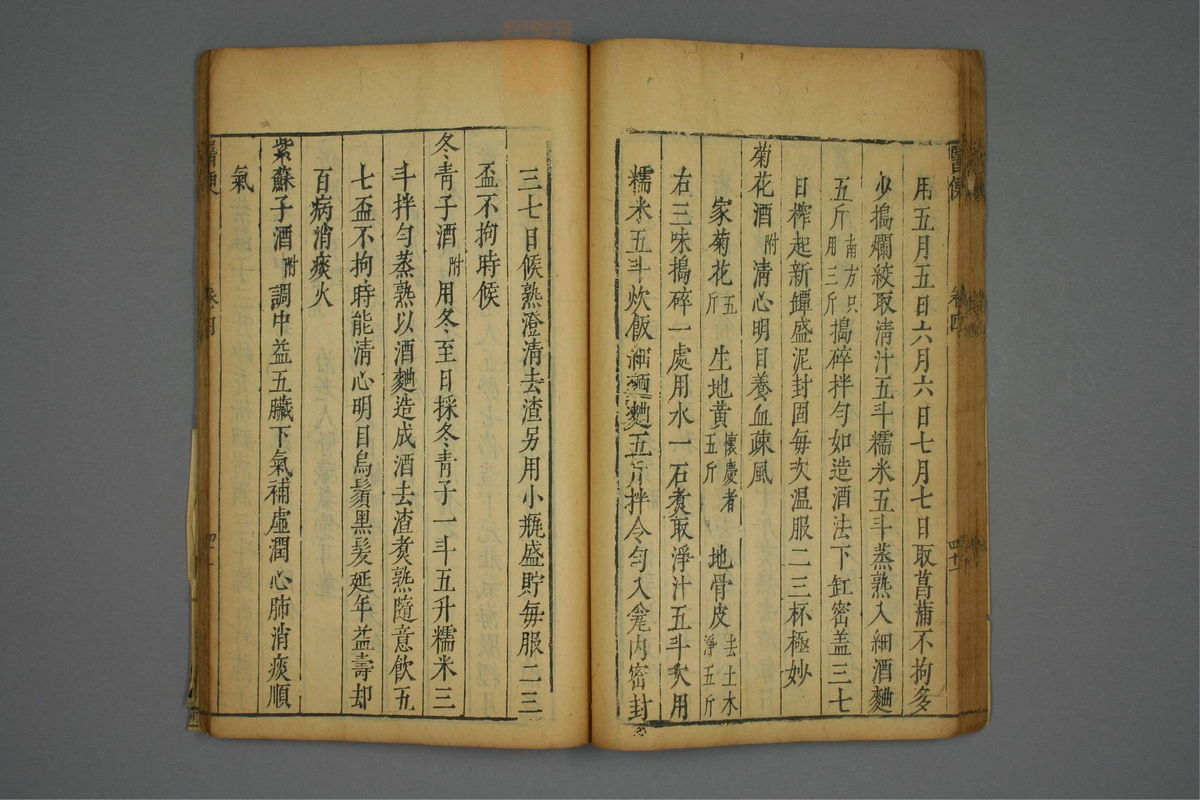 用五月五日六月六日七月七日取菖蒲不拘多
少搗爛絞取清汁五斗糯米五斗蒸熟入細酒麯
五斤南方只用三斤搗碎拌勻如造酒法下缸密盖三七
日榨起新罈盛泥封固每次温服二三杯極妙
菊花酒附清心明目養血疎風
家菊花五斤 生地黄懷慶者五斤 地骨皮去土木淨五斤
右三味搗碎一處用水一石煮取淨汁五斗次用
糯米五斗炊飯細麵麯五斤拌令勻入瓮内密封
三七日候熟澄清去渣另用小瓶盛貯每服二三
盃不拘時候
冬青子酒附用冬至日採冬青子一斗五升糯米三
斗拌勻蒸熟以酒麯造成酒去渣煮熟隨意飲五
七盃不拘時能清心明目烏鬚黑髮延年益壽却
百病消痰火
紫蘇子酒附調中益五臟下氣補虛潤心肺消痰順
氣
醫便
卷四
四十一